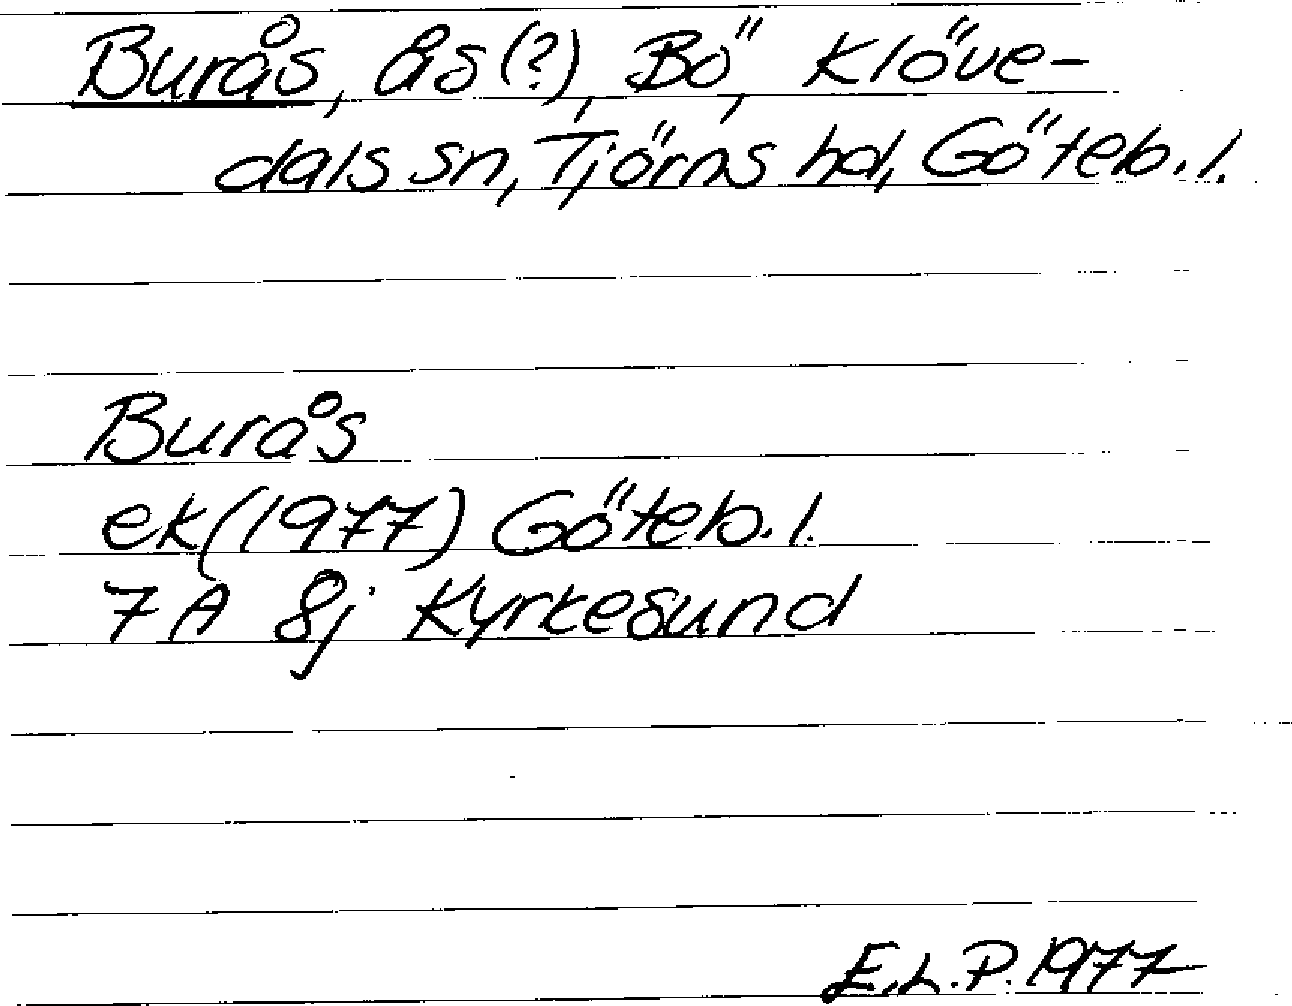 Burås, ås(?), Bö, Klöve-
dals sn, Tjörns hd, Göteb.l.
Burås
ek(1977) Göteb.l.
7A 8j Kyrkesund
E.L.P. 1977